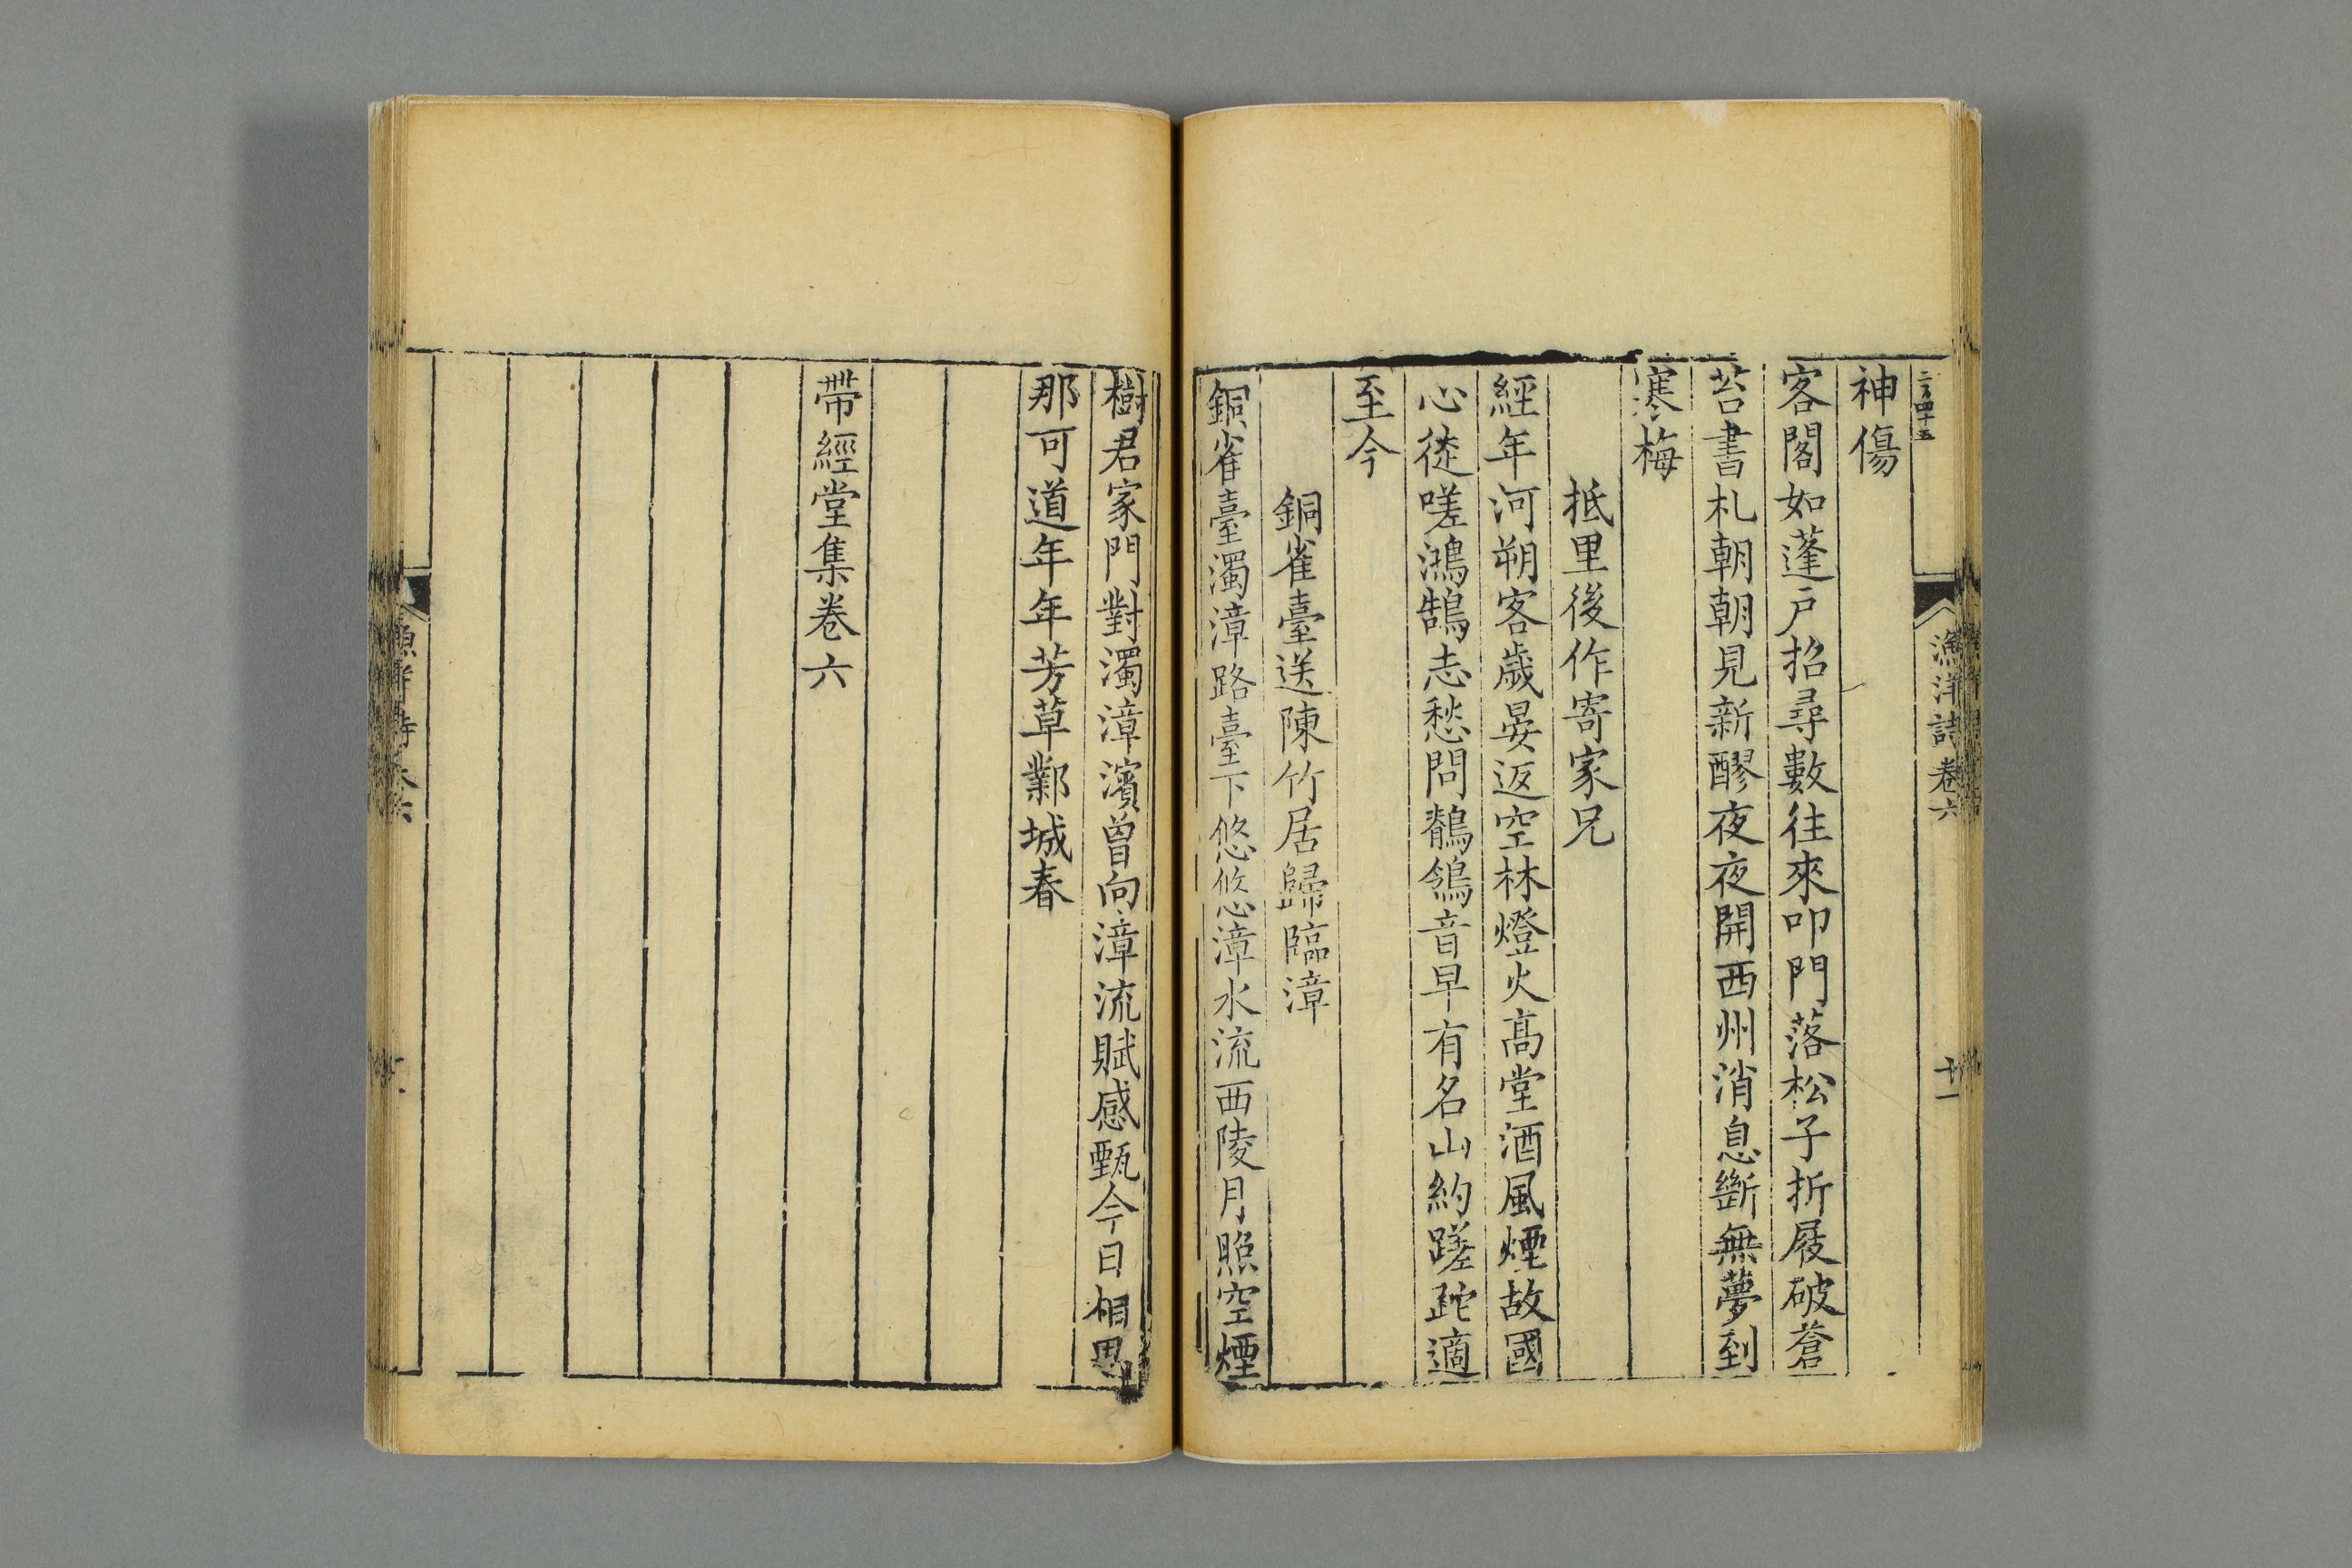 二百四十五
漁洋詩卷六
十一
神傷
客閣如蓬戸招尋數往來叩門落松子折屐破蒼
苔書札朝朝見新醪夜夜開西州消息斷無夢到
寒梅
抵里後作寄家兄
經年河朔客歲晏返空林燈火髙堂酒風煙故國
心徒嗟鴻鵠志愁問鶺鴒音早有名山約蹉跎適
至今
銅雀臺送陳竹居歸臨漳
銅雀臺濁漳路臺下悠悠漳水流西陵月照空煙
樹君家門對濁漳濱曾向漳流賦感甄今日相思
那可道年年芳草鄴城春
帶經堂集卷六